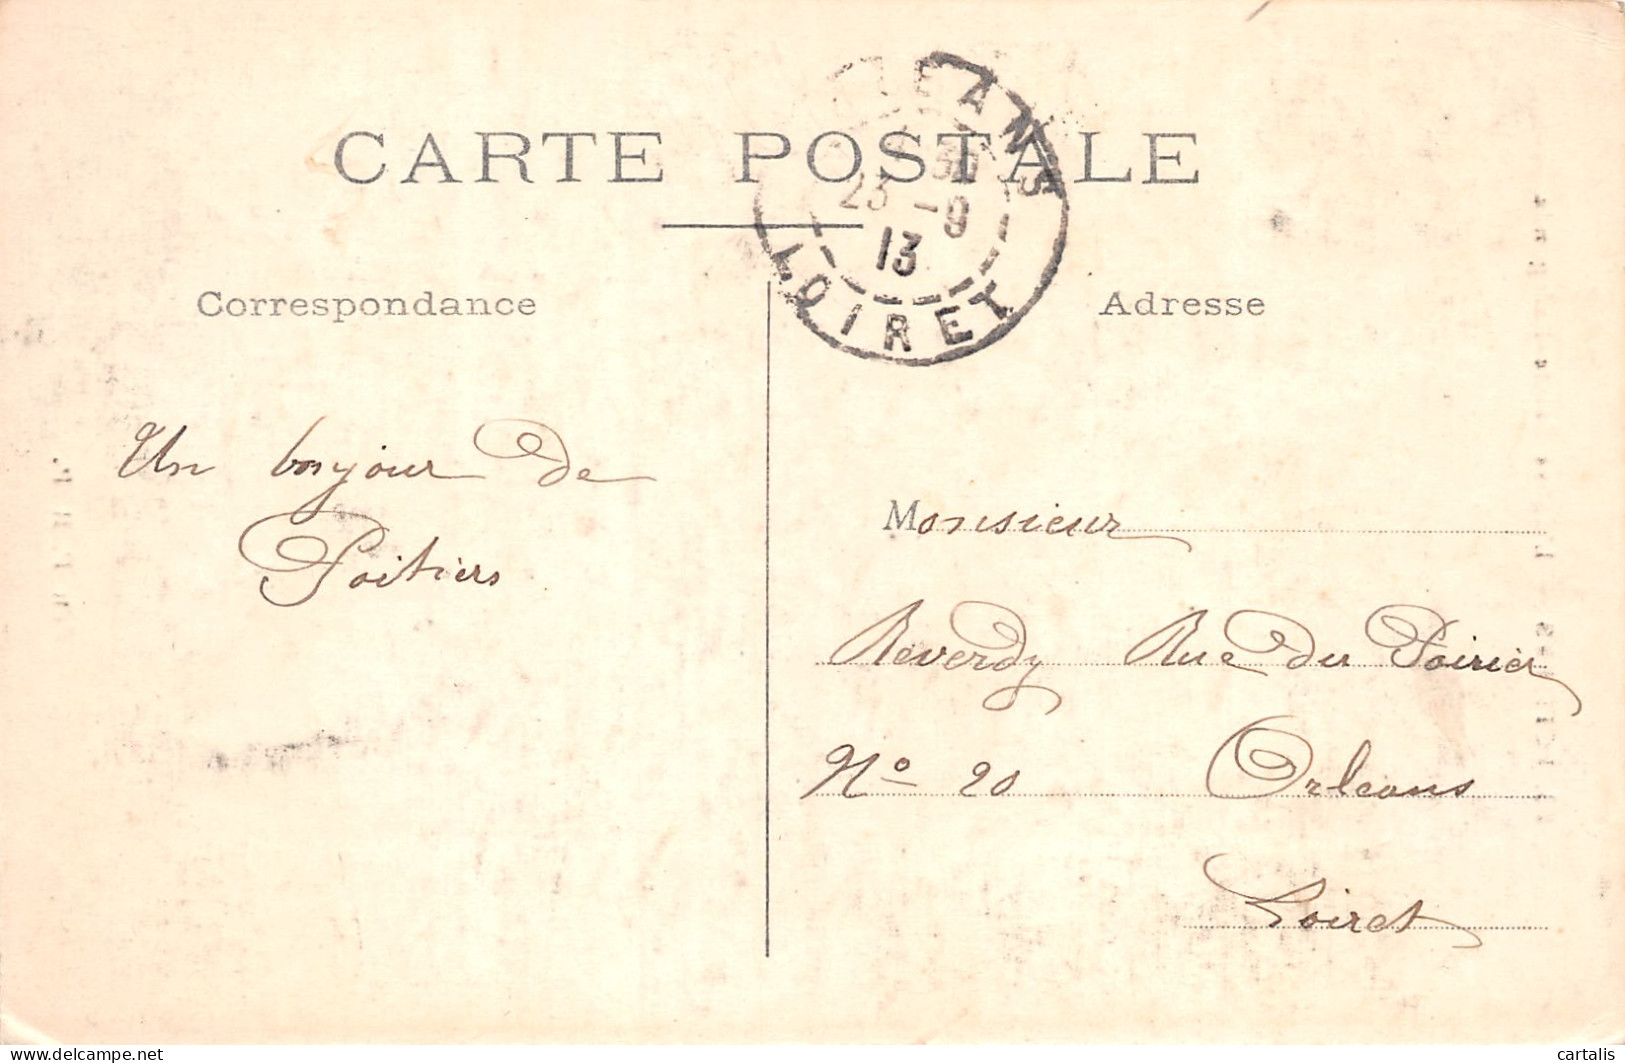 CARTE POSTALE
ORLEANS
30
23 - 9
13
LOIRET
Correspondance
Adresse
Un bonjour de
Poitiers
Monsieur
Reverdy Rue du Poirier
No 20 Orleans
Loiret
www.delcampe.net
cartalis